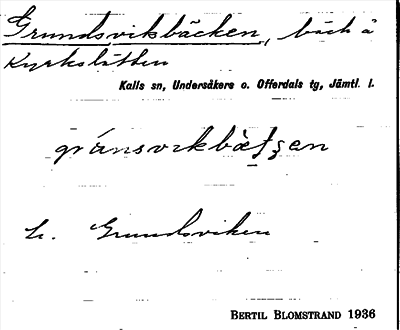 Grundsviksbäcken, bäck å
Kyrkslåtten
Kalls sn, Undersåkers o. Offerdals tg, Jämtl. l.
Grundsviken
BERTIL BLOMSTRAND 1936